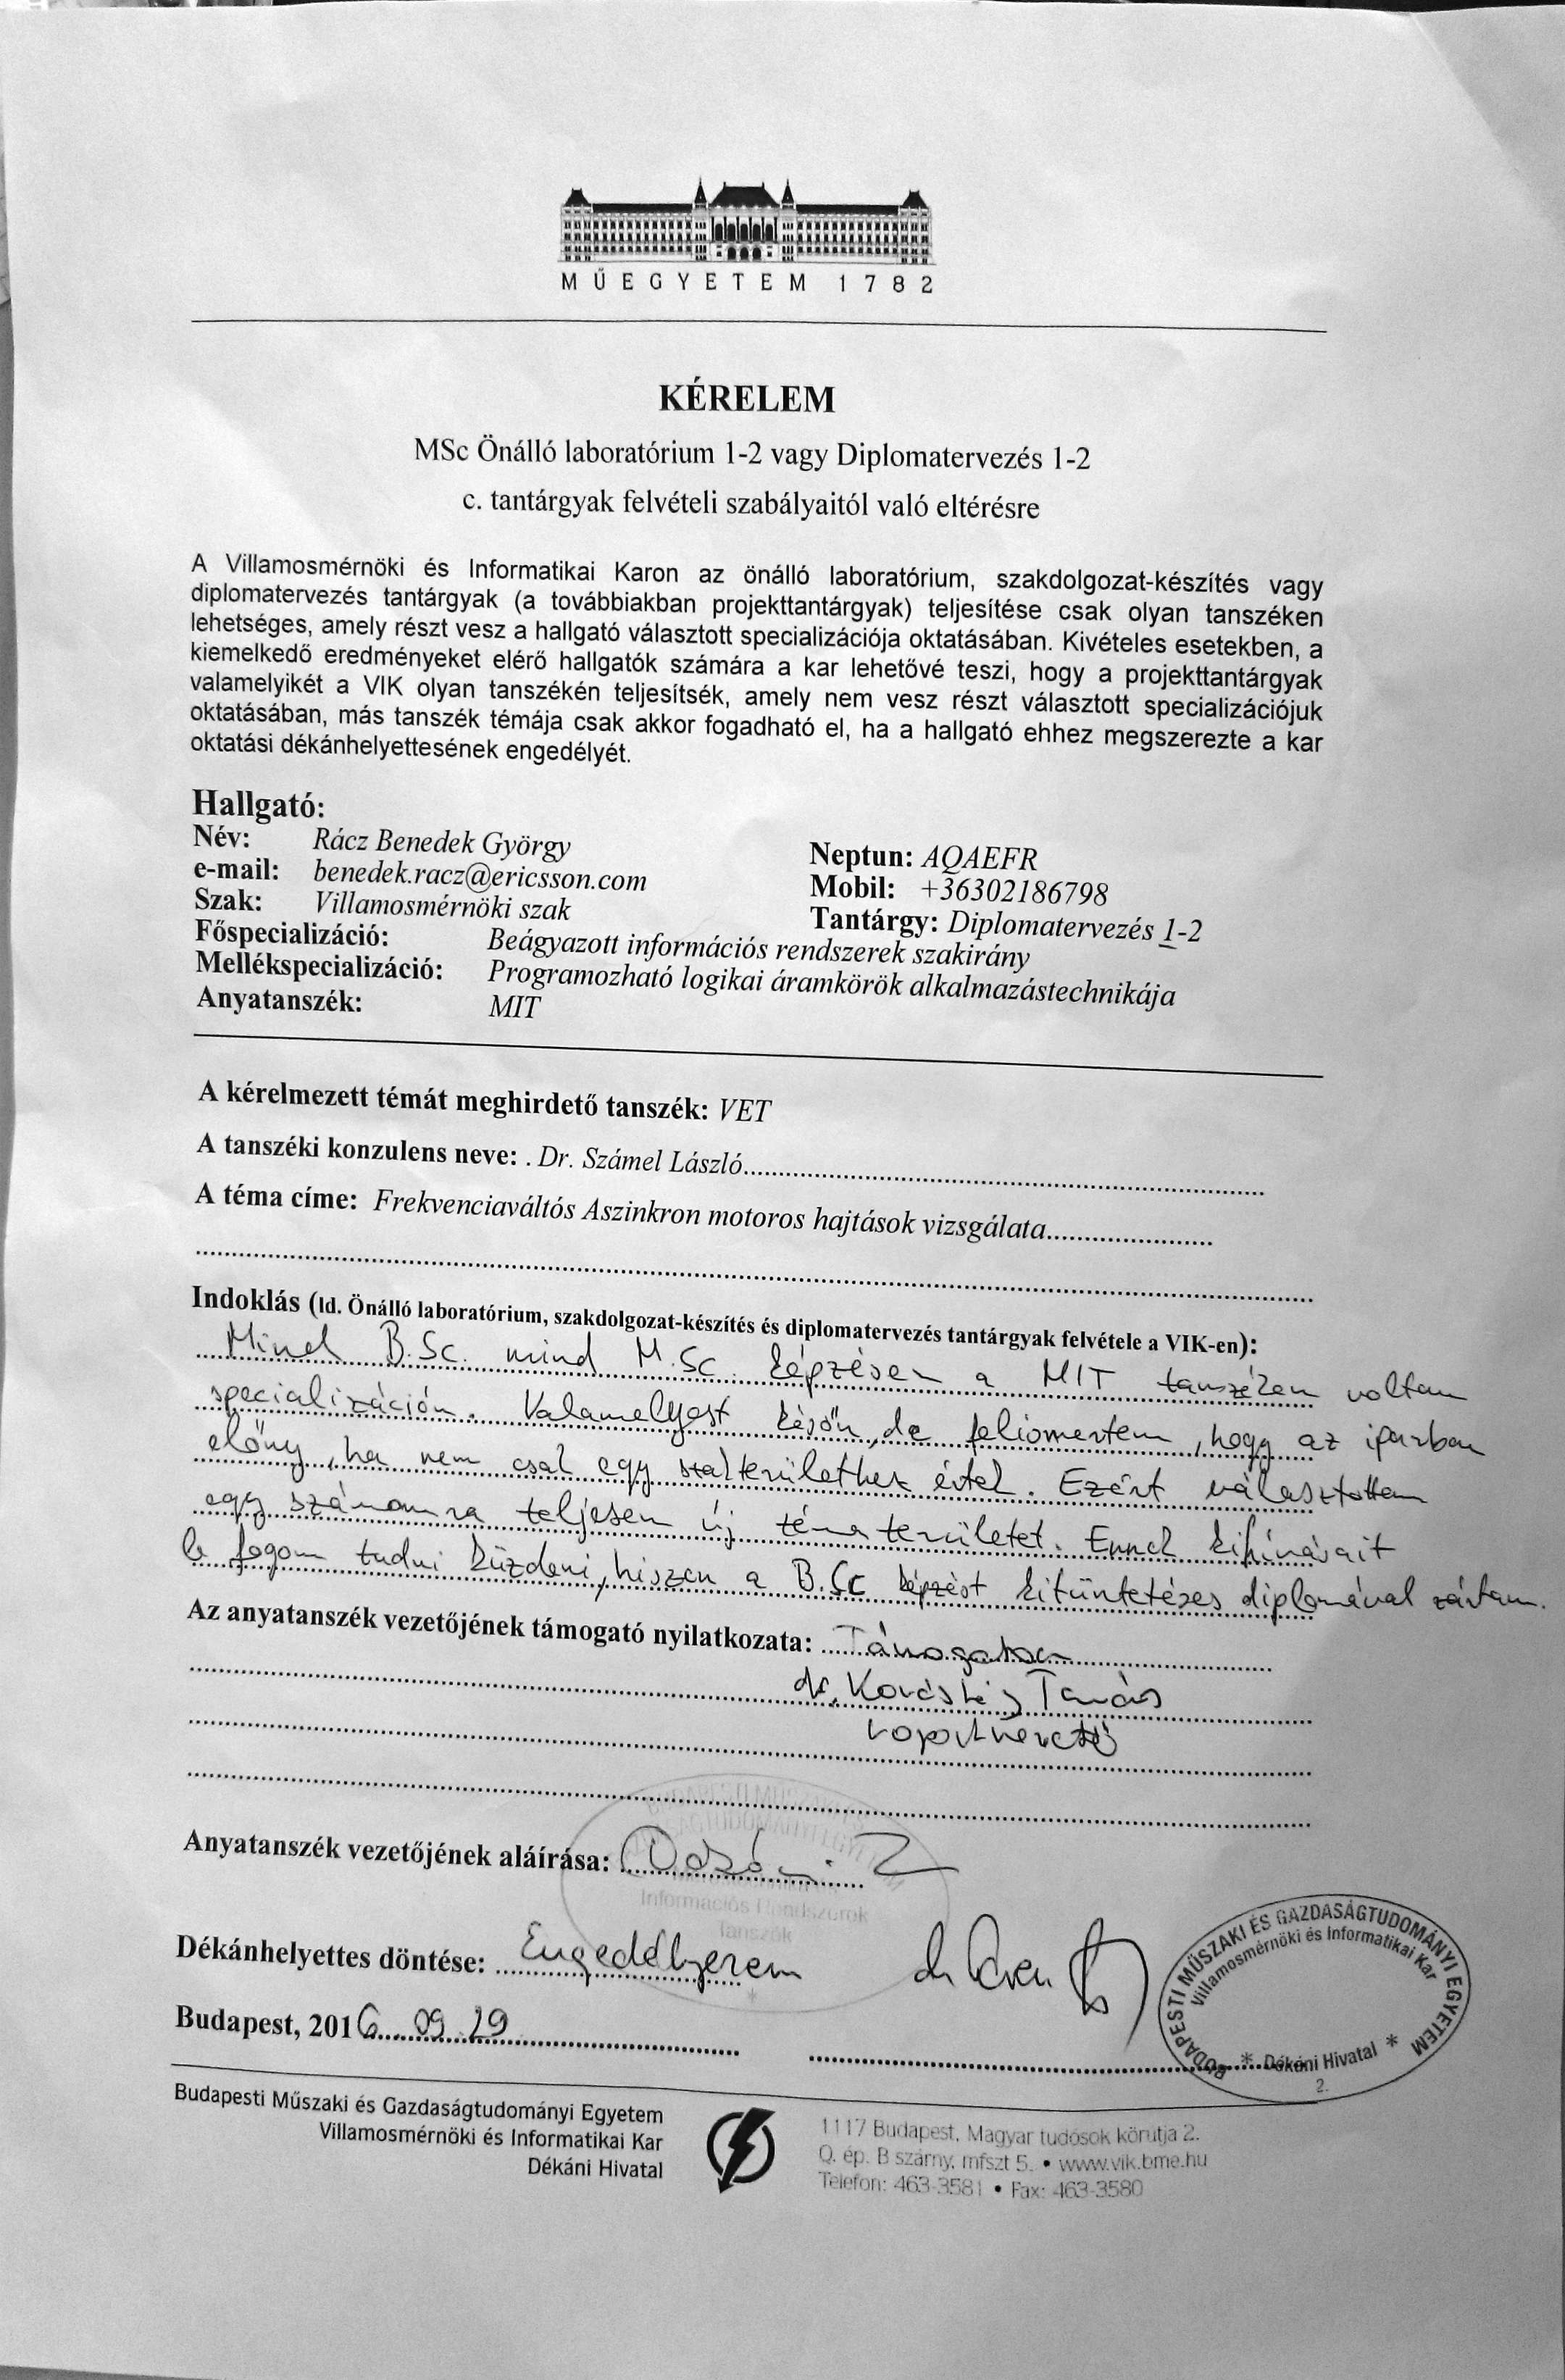 MŰEGYETEM 1782
KÉRELEM
MSc Önálló laboratórium 1-2 vagy Diplomatervezés 1-2
c. tantárgyak felvételi szabályaitól való eltérésre
A Villamosmérnöki és Informatikai Karon az önálló laboratórium, szakdolgozat-készítés vagy
diplomatervezés tantárgyak (a továbbiakban projekttantárgyak) teljesítése csak olyan tanszéken
lehetséges, amely részt vesz a hallgató választott specializációja oktatásában. Kivételes esetekben, a
kiemelkedő eredményeket elérő hallgatók számára a kar lehetővé teszi, hogy a projekttantárgyak
valamelyikét a VIK olyan tanszékén teljesítsék, amely nem vesz részt választott specializációjuk
oktatásában, más tanszék témája csak akkor fogadható el, ha a hallgató ehhez megszerezte a kar
oktatási dékánhelyettesének engedélyét.
Hallgató:
Név: Rácz Benedek György
Neptun: AQAEFR
e-mail: benedek.racz@ericsson.com
Mobil: +36302186798
Szak: Villamosmérnöki szak
Tantárgy: Diplomatervezés 1-2
Főspecializáció: Beágyazott információs rendszerek szakirány
Mellékspecializáció: Programozható logikai áramkörök alkalmazástechnikája
Anyatanszék: MIT
A kérelmezett témát meghirdető tanszék: VET
A tanszéki konzulens neve: . Dr. Számel László
A téma címe: Frekvenciaváltós Aszinkron motoros hajtások vizsgálata
Indoklás (ld. Önálló laboratórium, szakdolgozat-készítés és diplomatervezés tantárgyak felvétele a VIK-en):
Mind B.Sc. mind M.Sc. képzésen a MIT tanszéken voltam
specializáción. Valamelyest későn, de felismertem, hogy az iparban
előny, ha nem csak egy szakterülethez értek. Ezért választottam
egy számomra teljesen új tématerületet. Ennek kihívásait
le fogom tudni küzdeni, hiszen a B.Sc képzést kitüntetéses diplomával zártam.
Az anyatanszék vezetőjének támogató nyilatkozata: Támogatom
dr. Kovácsházy Tamás
csoportvezető
Anyatanszék vezetőjének aláírása:
Információs Rendszerek
Tanszék
Dékánhelyettes döntése: Engedélyezem
BUDAPESTI MŰSZAKI ÉS GAZDASÁGTUDOMÁNYI EGYETEM
Villamosmérnöki és Informatikai Kar
* Dékáni Hivatal *
2.
Budapest, 2016. 09. 29
Budapesti Műszaki és Gazdaságtudományi Egyetem
Villamosmérnöki és Informatikai Kar
Dékáni Hivatal
1117 Budapest, Magyar tudósok körútja 2.
Q. ép. B szárny, mfszt 5. • www.vik.bme.hu
Telefon: 463-3581 • Fax: 463-3580